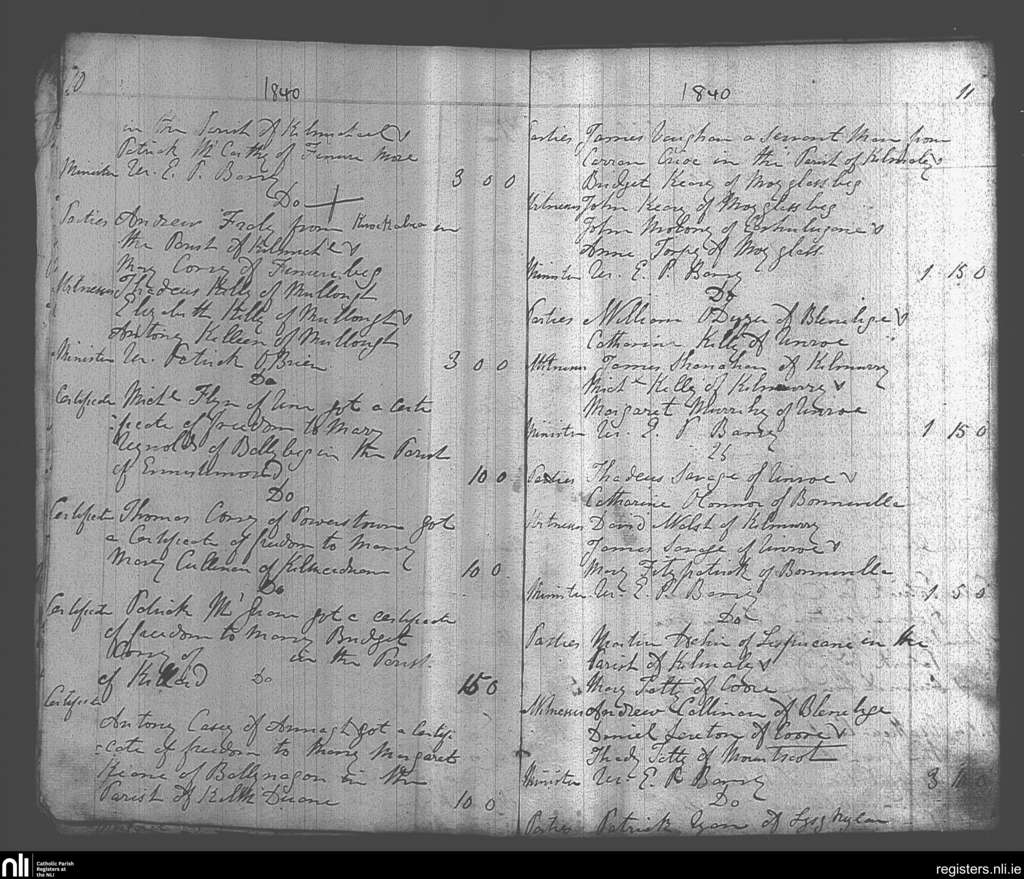 10
1840
in the Parish of Kilmichael
Patrick McCarthy of Finure More
Minister Ur. E. P. Barry 3 0 0
Do
Parties Andrew Fraly from Knockalua in
the Parish of Kilmichl
Mary Conry of Finure beg
Witnesses Thadeus Kelly of Mullough
Elizabeth Kelly of Mullough
Antony Killeen of Mullough
Minister Ur. Patrick O'Brien 3 0 0
Do
Certificate Michl Flyn of got a Certi
ficate of freedom to Marry
Reynolds of Ballybeg in the Parish
of 10 0
Do
Certificate Thomas Conry of Powerstown got
a Certificate of freedom to Marry
Mary Cullinan of 10 0
Do
Certificate Patrick Mc got a certificate
of freedom to Marry Bridget
Conry of in the Parish
of Killard Do 15 0
Certificate
Antony Casey of Annagh got a Certifi-
-cate of freedom to Marry Margaret
Keane of Ballynagon in the
Parish of Kilmc Duane 10 0
1840
11
Parties James Vaughan a Servant Man from
in the Parish of Kilmaley
Bridget Keary of Moyglass beg
Witnesses John Keary of Moyglass beg
John Molony of
Anne Torpy of Moyglass
Minister Ur. E. P. Barry 1 15 0
Do
Parties William O'Dyer of
Catharine Kelly of Unroe
Witnesses James Shanahan of Kilmurry
Michl Kelly of Kilmurry
Margaret Murrihy of Unroe
Minister Ur. E. P. Barry 1 15 0
25
Parties Thadeus Savage of Unroe
Catharine O Connor of Bonnavilla
Witnesses David Walsh of Kilmurry
James Savage of Unroe
Mary Fitzpatrick of Bonnavilla
Minister Ur. E. P. Barry 1 5 0
Do
Parties Martin of in the
Parish of Kilmaley
Mary Tatty of Coore
Witnesses Andrew Callinan of
Daniel Sexton of Coore
Thady Tatty of Mountscot
Minister Ur. E. P. Barry 3
Do
Parties Patrick of
nli
Catholic Parish
Registers at
the NLI
registers.nli.ie